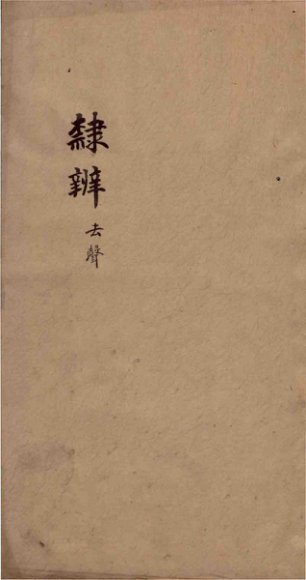 隸辨
去聲